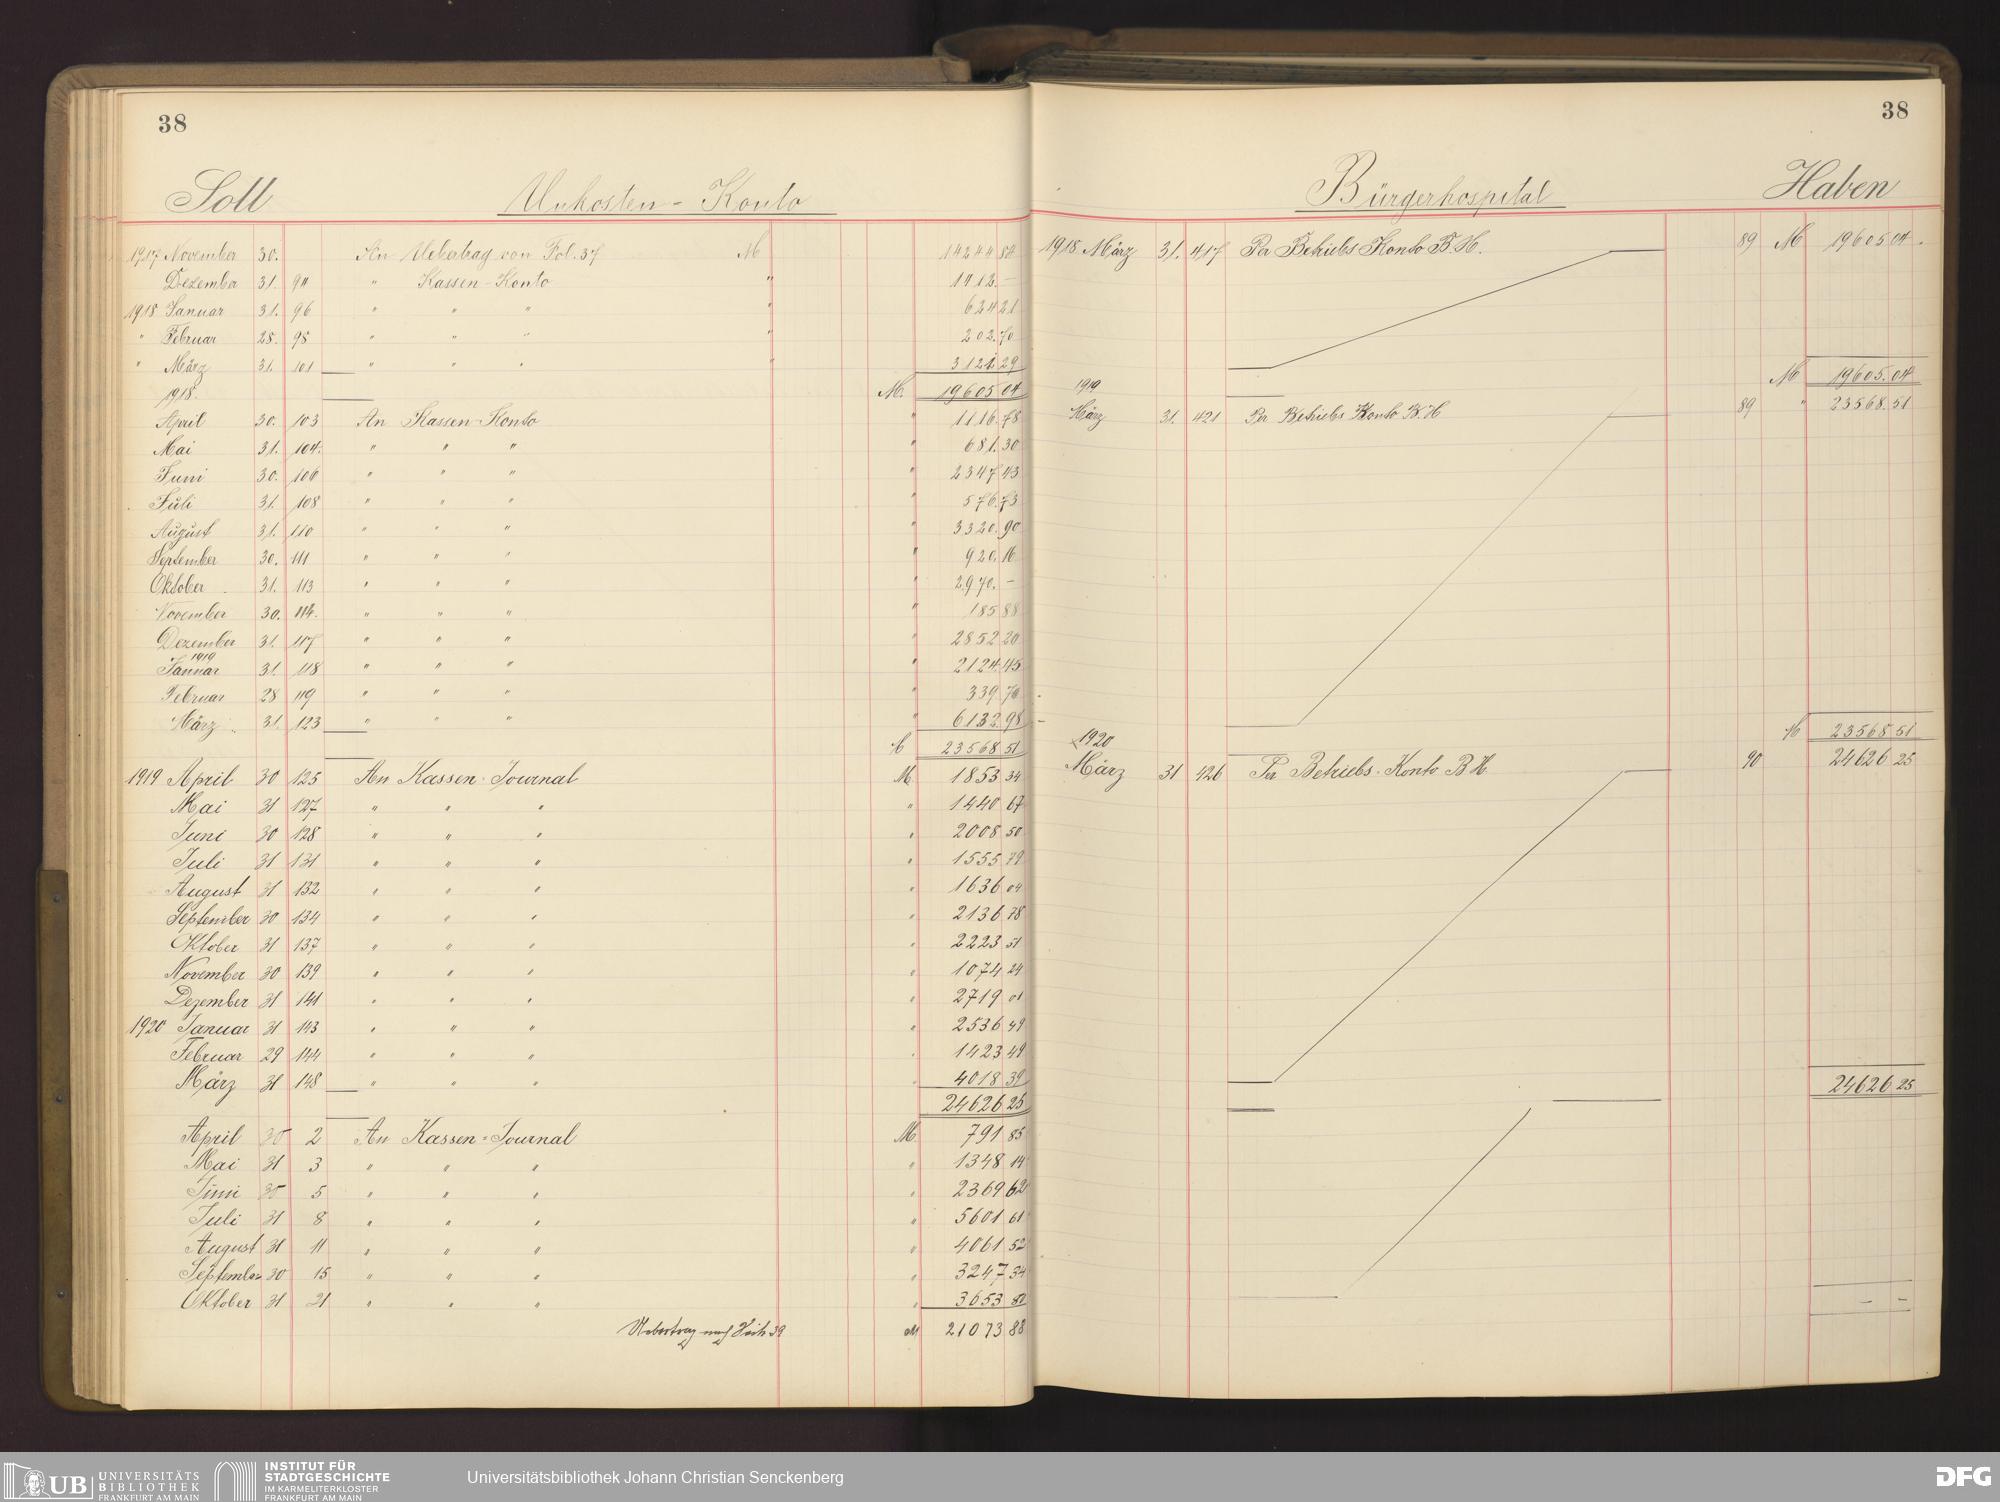 38
Soll Unkosten-Konto
1917 November 30. An Uebertrag von Fol. 37 M 14244 84
Dezember 31. 94 " Kassen-Konto " 1412. –
1918 Januar 31. 96 " " " " 624 21
" Februar 28. 98 " " " " 202. 70
" März 31. 101 " " " " 3121. 29
1918. M. 19605 04
April 30. 103 An Kassen-Konto " 1116. 78
Mai 31. 104. " " " " 681. 30
Juni 30. 106 " " " " 2347 43
Juli 31. 108 " " " " 576. 73
August 31. 110 " " " " 3320. 90
September 30. 111 " " " " 920. 16
Oktober 31. 113 " " " " 2970. –
November 30. 114. " " " " 185 88
Dezember 31. 117 " " " " 2852 20
1919
Januar 31. 118 " " " " 2124. 45
Februar 28 119 " " " " 339 70
März 31. 123 " " " " 6132. 98
M 23568 51
1919 April 30 125 An Kassen-Journal M. 1853 34
Mai 31 127 " " " " 1440 67
Juni 30 128 " " " " 2008 50
Juli 31 131 " " " " 1555 79
August 31 132 " " " " 1636 04
September 30 134 " " " " 2136 78
Oktober 31 137 " " " " 2223 51
November 30 139 " " " " 1074 24
Dezember 31 141 " " " " 2719 01
1920 Januar 31 143 " " " " 2536 49
Februar 29 144 " " " " 1423 49
März 31 148 " " " " 4018 39
24626 25
April 30 2 An Kassen-Journal M. 791 85
Mai 31 3 " " " " 1348 14
Juni 30 5 " " " " 2369 62
Juli 31 8 " " " " 5601 61
August 31 11 " " " " 4061 52
September 30 15 " " " " 3247 34
Oktober 31 21 " " " " 3653 80
Uebertrag nach Seite 39 M 21073 88
38
Bürgerhospital Haben
1918 März 31. 417 Per Betriebs Konto B.H. 89 M 19605 04.
M 19605. 04
1919
März 31. 421 Per Betriebs Konto B.H 89 " 23568. 51
M 23568 51
1920
März 31 426 Per Betriebs-Konto B.H. 90 24626 25
24626 25
– –
UB UNIVERSITÄTS
BIBLIOTHEK
FRANKFURT AM MAIN
INSTITUT FÜR
STADTGESCHICHTE
IM KARMELITERKLOSTER
FRANKFURT AM MAIN
Universitätsbibliothek Johann Christian Senckenberg
DFG